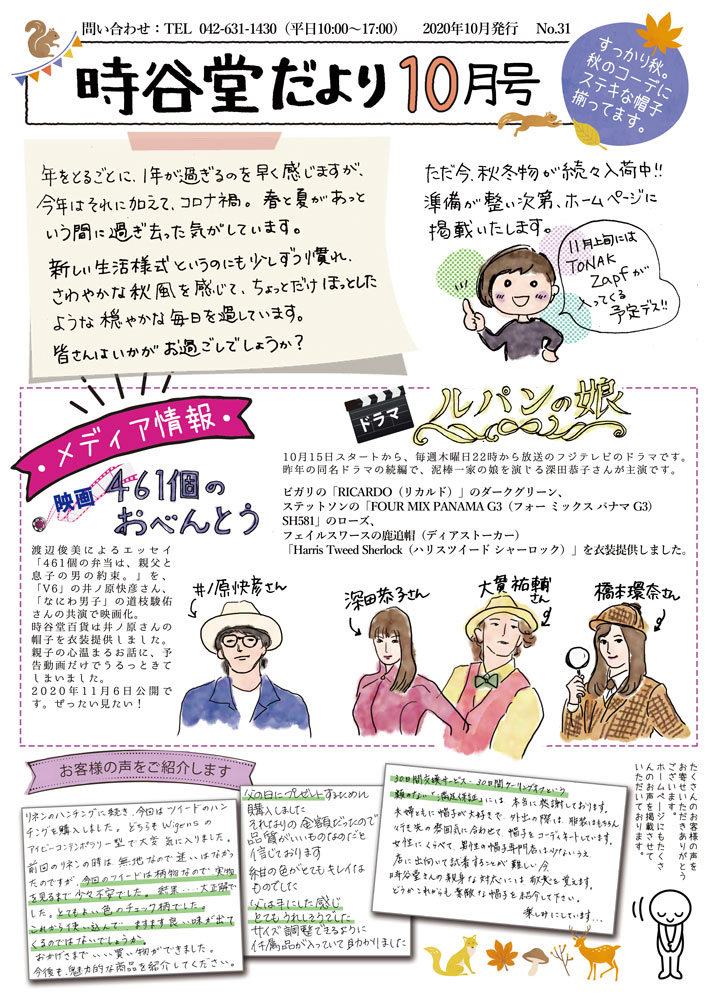 問い合わせ：TEL 042-631-1430（平日10:00〜17:00） 2020年10月発行 No.31
時谷堂だより10月号
すっかり秋。
秋のコーデに
ステキな帽子
揃ってます。
年をとるごとに、1年が過ぎるのを早く感じますが、
今年はそれに加えて、コロナ禍。春と夏があっと
いう間に過ぎ去った気がしています。
新しい生活様式というのにも少しずつ慣れ、
さわやかな秋風を感じて、ちょっとだけほっとした
ような穏やかな毎日を過しています。
皆さんはいかがお過ごしでしょうか？
ただ今、秋冬物が続々入荷中!!
準備が整い次第、ホームページに
掲載いたします。
11月上旬には
TONAK
Zapfが
入ってくる
予定デス!!
・メディア情報・
ドラマ
ルパンの娘
10月15日スタートから、毎週木曜日22時から放送のフジテレビのドラマです。
昨年の同名ドラマの続編で、泥棒一家の娘を演じる深田恭子さんが主演です。
ビガリの「RICARDO（リカルド）」のダークグリーン、
ステットソンの「FOUR MIX PANAMA G3（フォー ミックス パナマ G3）
SH581」のローズ、
フェイルスワースの鹿追帽（ディアストーカー）
「Harris Tweed Sherlock（ハリスツイード シャーロック）」を衣装提供しました。
映画
461個の
おべんとう
渡辺俊美によるエッセイ
「461個の弁当は、親父と
息子の男の約束。」を、
「V6」の井ノ原快彦さん、
「なにわ男子」の道枝駿佑
さんの共演で映画化。
時谷堂百貨は井ノ原さんの
帽子を衣装提供しました。
親子の心温まるお話に、予
告動画だけでうるっときて
しまいました。
2020年11月6日公開で
す。ぜったい見たい！
井ノ原快彦さん
深田恭子さん
大貫祐輔
さん
橋本環奈さん
お客様の声をご紹介します
リネンのハンチングに続き、今回はツイードのハン
チングを購入しました。どちらもWigensの
アイビーコンテンポラリー型で大変気に入りました。
前回のリネンの時は無地なので迷いはなかっ
たのですが、今回のツイードは柄物なので実物
を見るまで少々不安でした。結果・・・大正解で
した。とてもよい色のチェック柄でした。
これから使い込んで、ますます良い味が出て
くるのではないでしょうか。
おかげさまでいい買い物ができました。
今後も、魅力的な商品を紹介してください。
父の日にプレゼントするために
購入しました
それなりの金額だったので
品質がいいものなのだと
信じております
紺の色がとてもキレイな
ものでした
父は手にした感じ
とてもうれしそうでした
サイズ調整できるように
付属品が入っていて助かりました
30日間交換サービス・30日間クーリングオフという
類のない「満足保証」には本当に感謝しております。
夫婦ともに帽子が大好きで、外出の際は、服装はもちろん
行き先の雰囲気に合わせて帽子をコーディネートしています。
女性にくらべて、男性の帽子専門店は少ないうえ
店に出向いて試着することが難しい今、
時谷堂さんの親身な対応には敬意を覚えます。
どうかこれからも素敵な帽子を紹介して下さい。
楽しみにしています…
たくさんのお客様の声を
お寄せいただきありがとう
ございます。
ホームページにもたくさ
んのお声を掲載させて
いただいております。